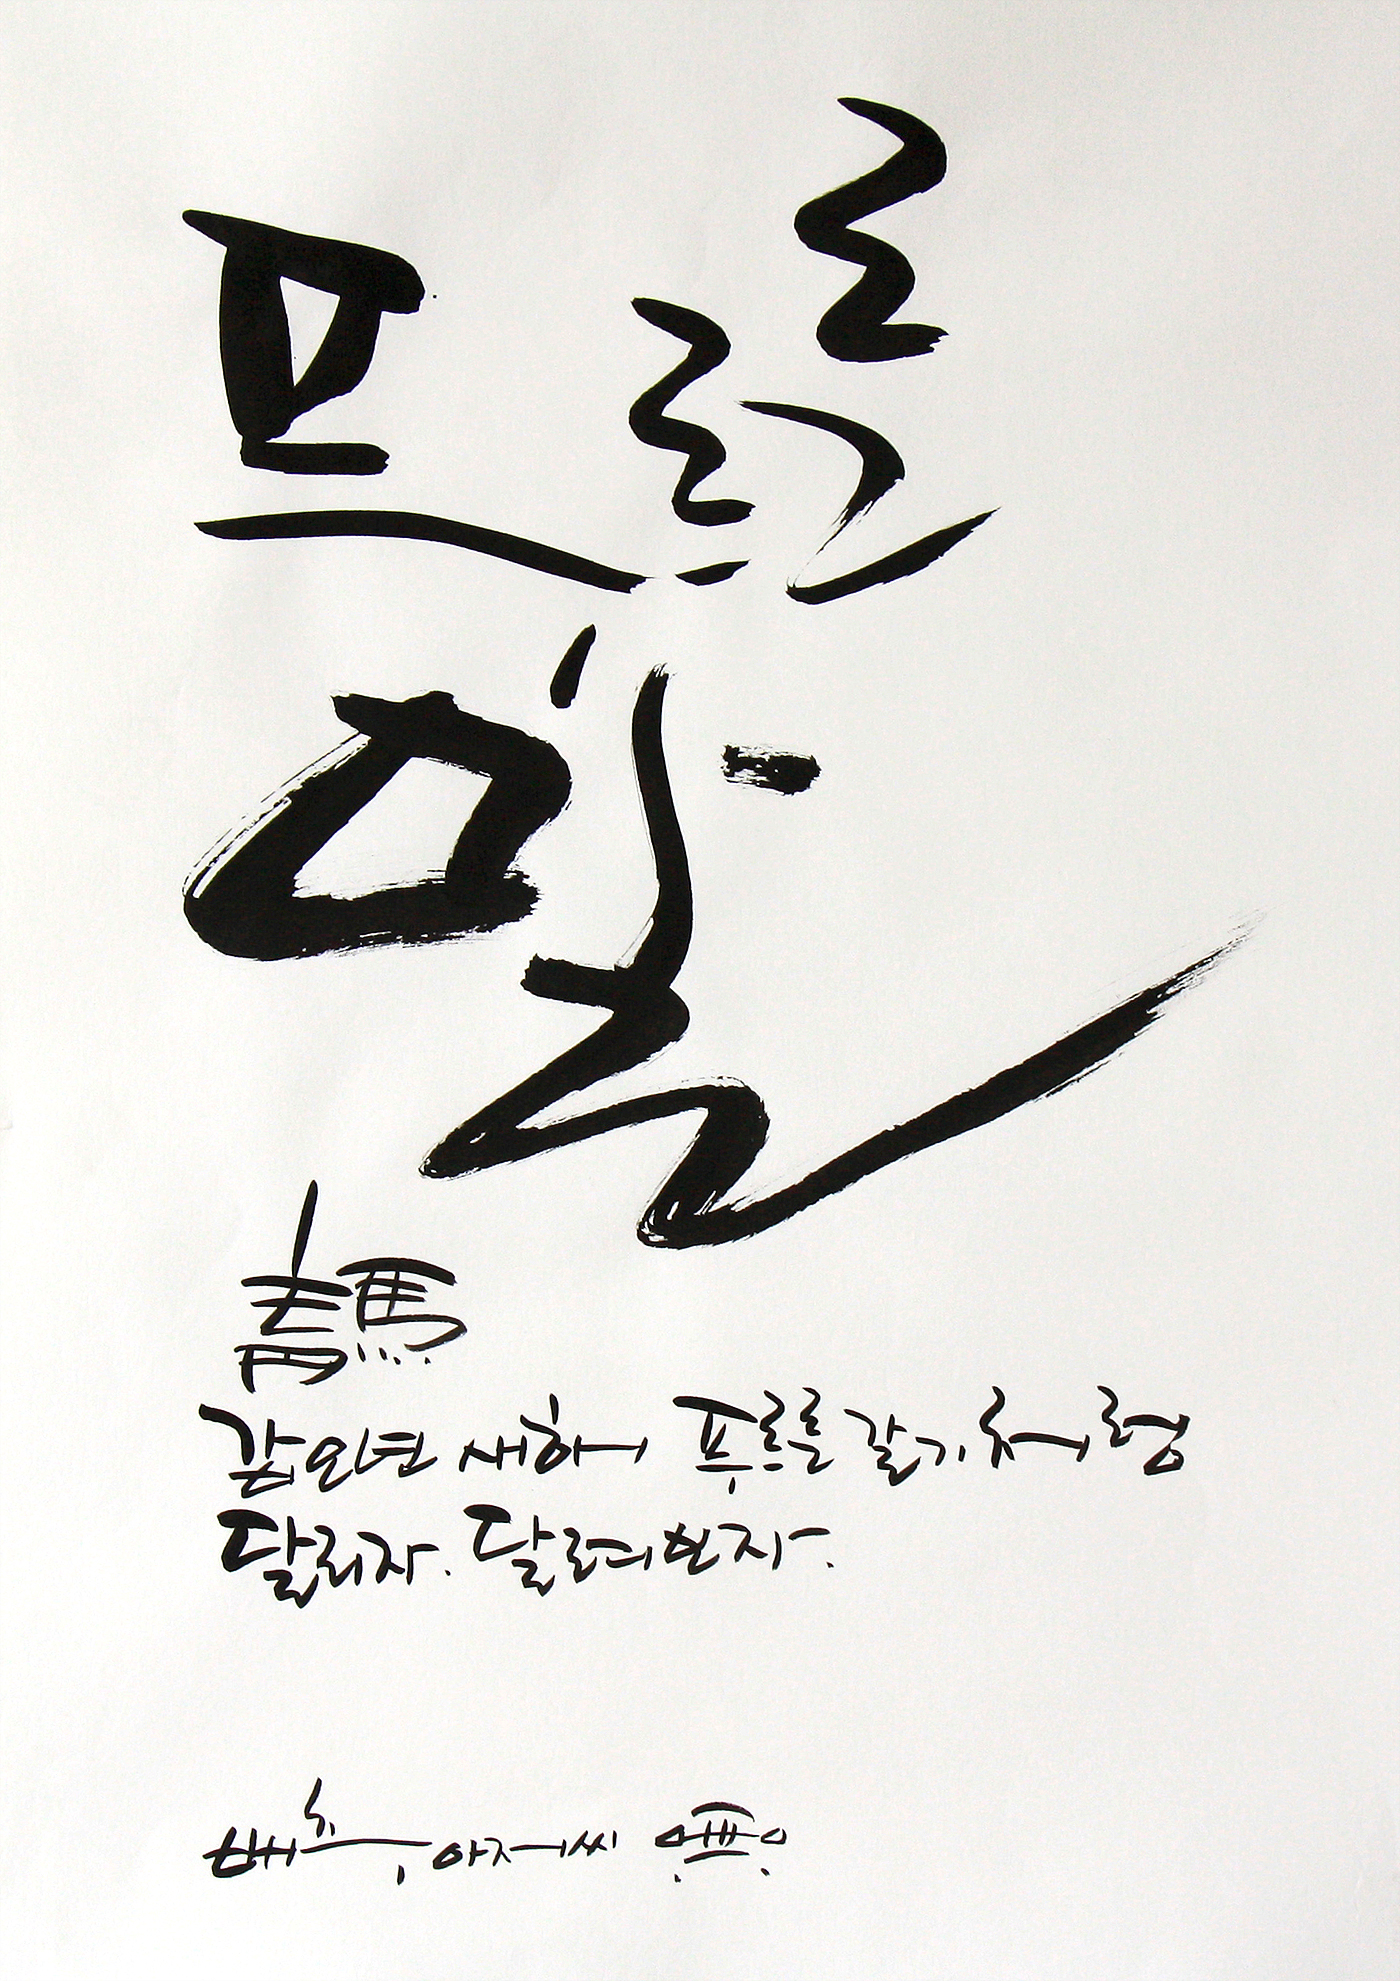 푸르른
말
靑馬
갑오년 새해 푸르른 갈기처럼
달리자. 달려보자.
배추 아저씨